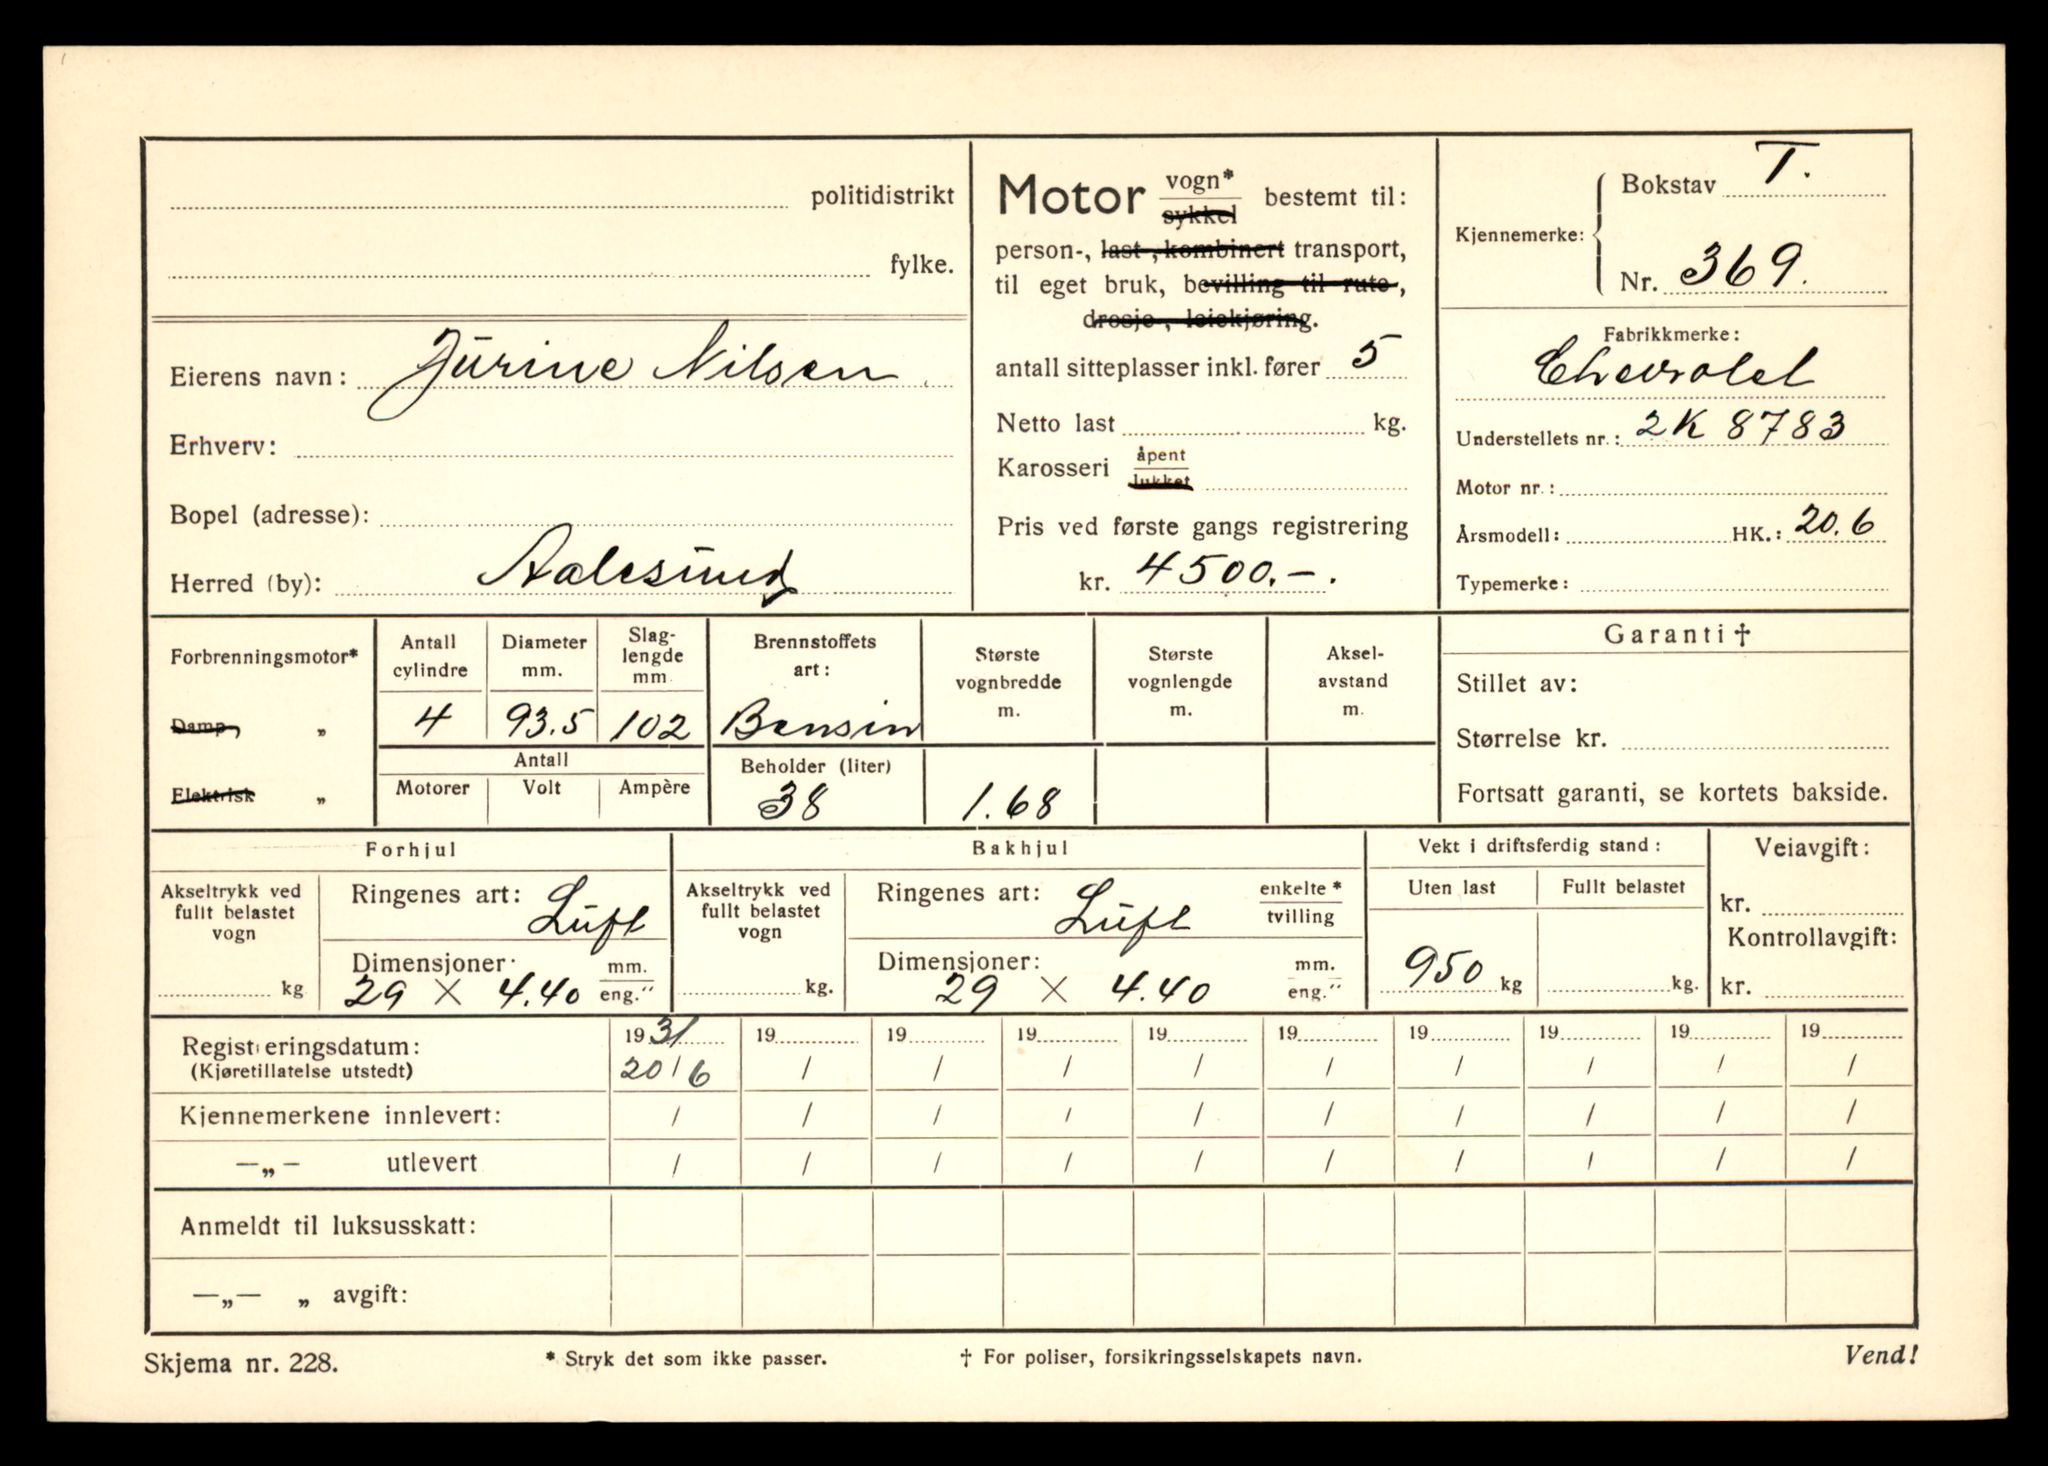 politidistrikt
fylke.
Eierens navn: Jürine Nilsen
Erhverv:
Bopel (adresse):
Herred (by): Aalesund
Motor vogn* sykkel bestemt til:
person-, last-, kombinert transport,
til eget bruk, bevilling til rute-,
drosje-, leiekjøring.
antall sitteplasser inkl. fører 5
Netto last kg.
Karosseri åpent lukket
Pris ved første gangs registrering
kr. 4500.-.
Kjennemerke: Bokstav T.
Nr. 369.
Fabrikkmerke:
Chevrolet
Understellets nr.: 2K 8783
Motor nr.:
Årsmodell: HK.: 20.6
Typemerke:
Forbrenningsmotor*
Damp- „
Elektrisk „
Antall cylindre
4
Diameter mm.
93.5
Slag-
lengde
mm
102
Antall
Motorer Volt Ampère
Brennstoffets
art:
Bensin
Beholder (liter)
38
Største
vognbredde
m.
1.68
Største
vognlengde
m.
Aksel-
avstand
m.
Garanti †
Stillet av:
Størrelse kr.
Fortsatt garanti, se kortets bakside.
Forhjul
Akseltrykk ved
fullt belastet
vogn
kg
Ringenes art: Lüft
Dimensjoner: mm.
29 × 4.40 eng."
Bakhjul
Akseltrykk ved
fullt belastet
vogn
kg.
Ringenes art: Lüft enkelte*
tvilling
Dimensjoner: mm.
29 × 4.40 eng."
Vekt i driftsferdig stand:
Uten last Fullt belastet
950 kg kg.
Veiavgift:
kr.
Kontrollavgift:
kr.
Registreringsdatum: 1931 19 19 19 19 19 19 19 19 19
(Kjøretillatelse utstedt) 20/6 / / / / / / / / /
Kjennemerkene innlevert: / / / / / / / / / /
—„— utlevert / / / / / / / / / /
Anmeldt til luksusskatt:
—„— „ avgift:
Skjema nr. 228. * Stryk det som ikke passer. † For poliser, forsikringsselskapets navn. Vend!